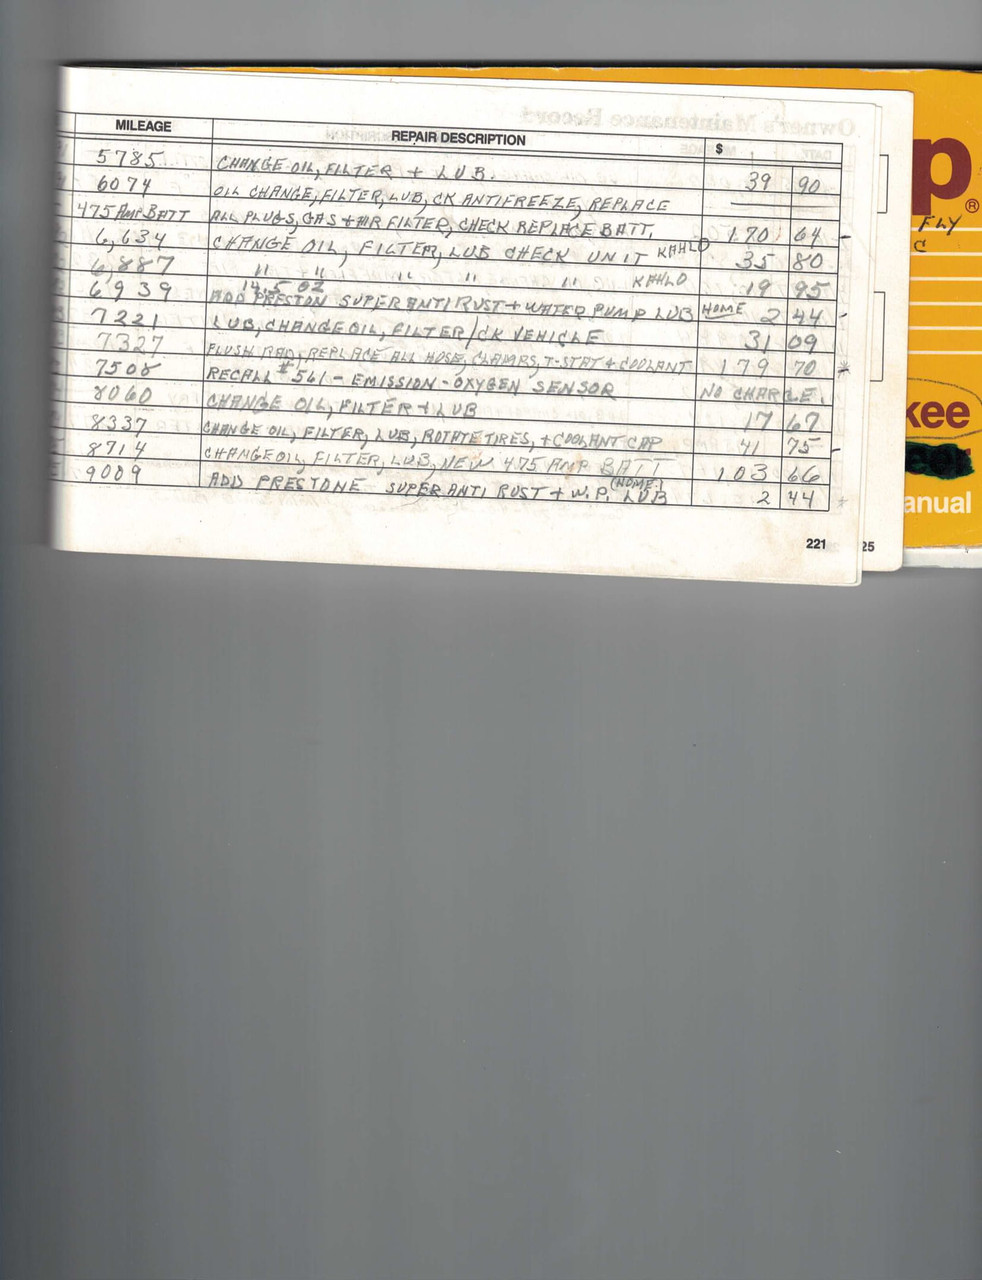 MILEAGE REPAIR DESCRIPTION $
5785 CHANGE OIL, FILTER + LUB. 39 90
6074 OIL CHANGE, FILTER, LUB, CK ANTIFREEZE, REPLACE
475 AMP BATT ALL PLUGS, GAS + AIR FILTER, CHECK REPLACE BATT, 170 64 -
6,634 CHANGE OIL, FILTER, LUB CHECK UNIT KAHLO 35 80
6,887 " " " " " KAHLO 19 95
14.5 OZ
6939 ADD PRESTON SUPER ANTI RUST + WATER PUMP LUB HOME 2 44 -
7221 LUB, CHANGE OIL, FILTER/CK VEHICLE 31 09
7327 FLUSH RAD, REPLACE ALL HOSE, CLAMPS, T-STAT + COOLANT 179 70 *
7508 RECALL #561 - EMISSION - OXYGEN SENSOR NO CHARGE.
8060 CHANGE OIL, FILTER + LUB 17 67
8337 CHANGE OIL, FILTER, LUB, ROTATE TIRES, + COOLANT CAP 41 75 -
8714 CHANGE OIL, FILTER, LUB, NEW 475 AMP BATT 103 66
(HOME)
9009 ADD PRESTONE SUPER ANTI RUST + W.P. LUB 2 44 *
221
25
Owner's Maintenance Record
p®
FLY
C
kee
anual